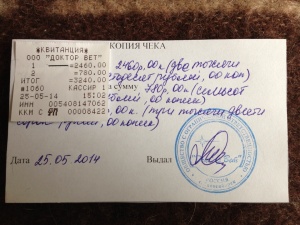 *КВИТАНЦИЯ*
ООО "ДОКТОР ВЕТ"
1 =2460.00
2 =780.00
ИТОГ =3240.00
#1060 КАССИР 1
25-05-14 15:02
ИНН 005408147062
ККМ С 00008422
КОПИЯ ЧЕКА
2460 р. 00 к (две тысячи
рублей, 00 коп)
сумму 780 р, 00к (семьсот
00 копеек
00 к. (три тысячи двести
рублей, 00 копеек)
Дата 25.05 2014 Выдал